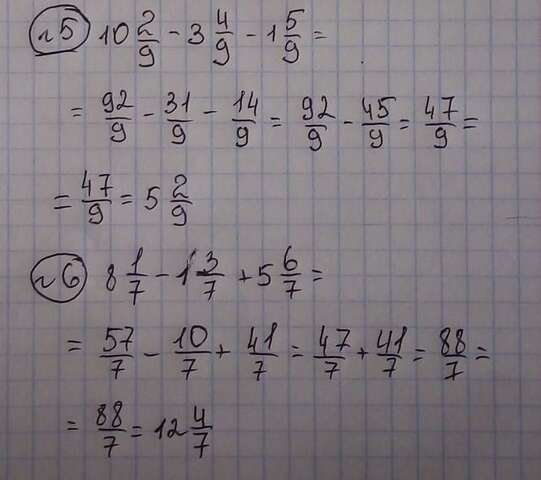 №5 10 2/9 - 3 4/9 - 1 5/9 =
= 92/9 - 31/9 - 14/9 = 92/9 - 45/9 = 47/9 =
= 47/9 = 5 2/9
№6 8 1/7 - 1 3/7 + 5 6/7 =
= 57/7 - 10/7 + 41/7 = 47/7 + 41/7 = 88/7 =
= 88/7 = 12 4/7